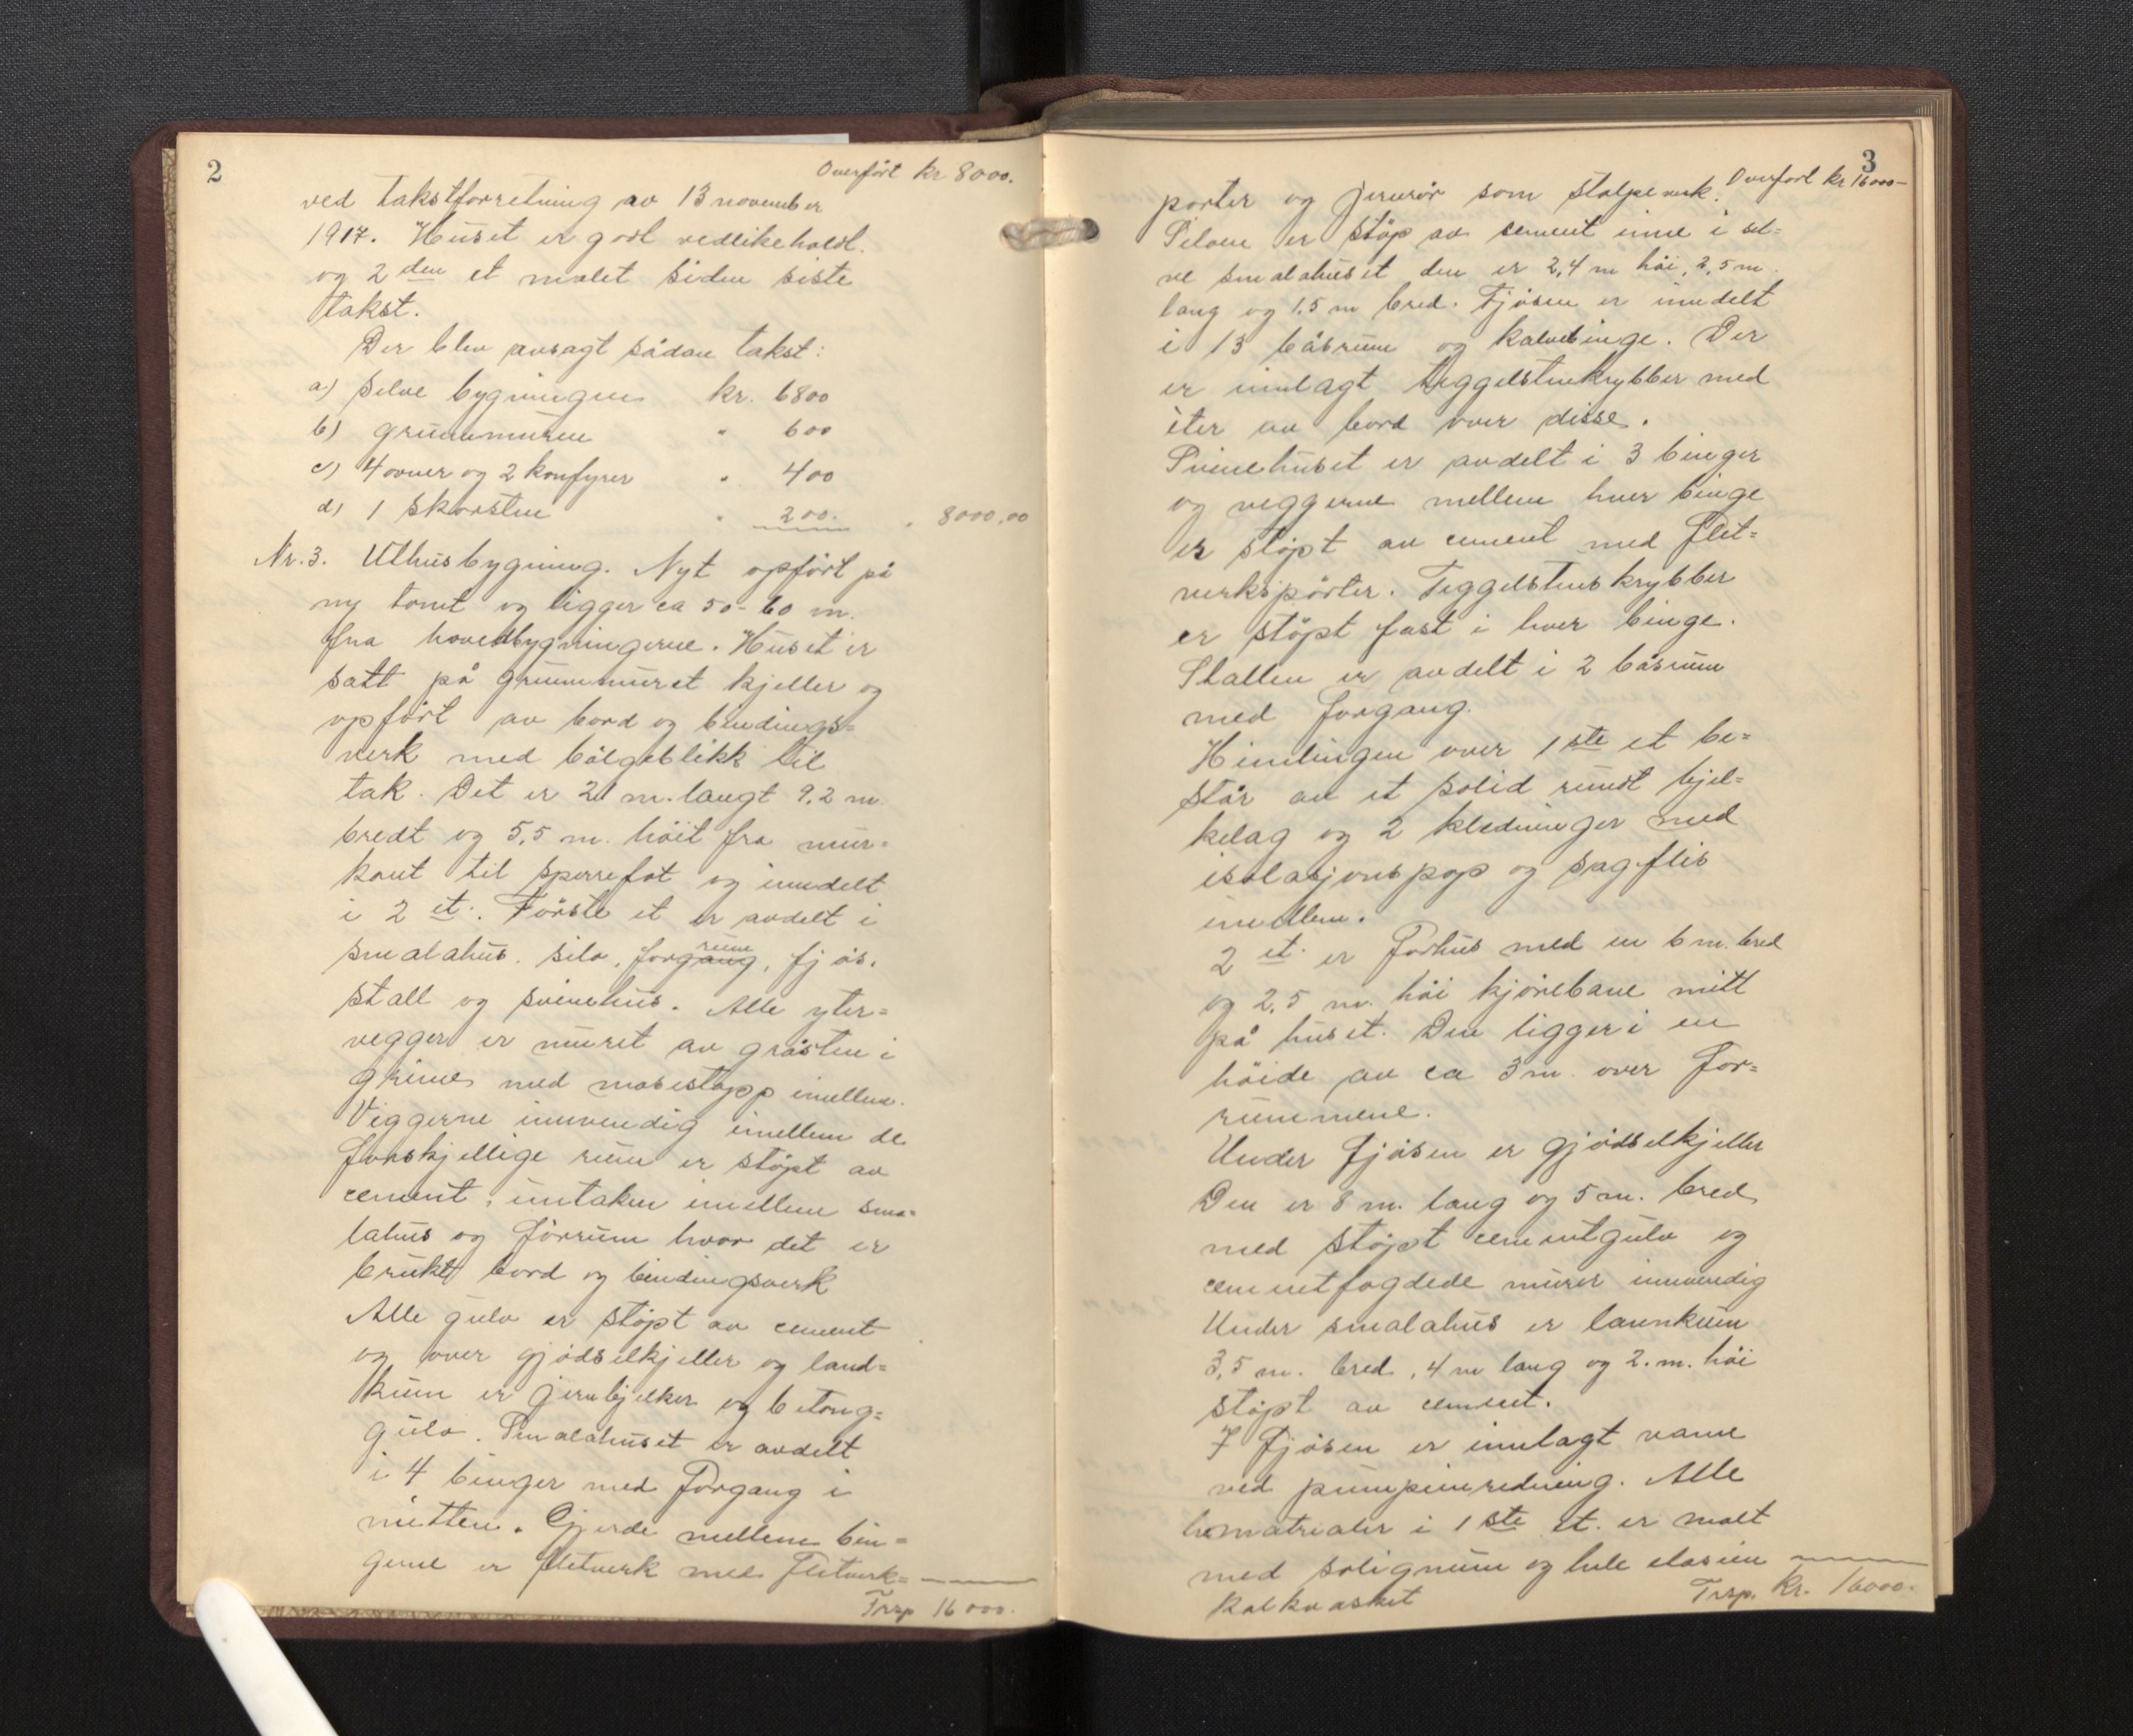 2
Overført kr 8000.
ved takstforretning av 13 november
1917. Huset er godt vedlikeholdt.
og 2 den et malet siden siste
takst.
Der blev avsagt sådan takst:
a) Selve bygningen kr. 6800
b) grunnmuren " 600
c) 4 ovner og 2 komfyrer " 400
d) 1 skorsten " 200. " 8000,00
Nr. 3. Uthusbygning. Nyt opført på
ny tomt og ligger ca 50-60 m.
fra hovedbygningerne. Huset er
satt på grunnmuret kjeller og
opført av bord og bindings=
verk med bølgeblikk til
tak. Det er 21 m. langt 9,2 m.
bredt og 5,5 m. høit fra mur=
kant til sperrefot og inndelt
i 2 et. Første et er avdelt i
rum
smalahus. silo, forgang, fjøs.
stall og svinehus. Alle yter=
vegger er muret av gråsten i
grime med mosestapp imellem.
Veggerne innvendig imellem de
forskjellige rum er støpt av
cement, untaken imellem sma=
lahus og forrum hvor det er
brukt bord og bindingsverk
Alle gulv er støpt av cement
og over gjødselkjeller og land=
kum er jernbjelker og betong=
gulv. Smalahuset er avdelt
i 4 binger med Forgang i
mitten. Gjerde mellem bin=
gene er fletverk med Fletverk=
Trsp 16000.
3
Overført kr 16000-
porter og jernrør som stolpeverk.
Siloen er støp av sement inne i sel=
ve smalahuset den er 2,4 m høi, 2,5 m.
lang og 1,5 m bred. Fjøsen er inndelt
i 13 båsrum og kalvebinge. Der
er innlagt teggelstenkrybber med
eter av bord over disse.
Svinehuset er avdelt i 3 binger
og veggerne mellem hver binge
er støpt av cement med flet=
verksporter. Teggelstenskrybber
er støpt fast i hver binge.
Stallen er avdelt i 2 båsrum
med forgang.
Himlingen over 1 ste et be=
står av et solid rundt bjel=
kelag og 2 kledninger med
isolasjonspap og sagflis
imellem.
2 et. er Forhus med en 6 m. bred
og 2,5 m. høi kjørebane mitt
på huset. Den ligger i en
høide av ca 3 m. over for=
rummene.
Under fjøsen er gjødselkjeller
Den er 8 m. lang og 5 m. bred
med støpt cementgulv og
cementfogdede murer innvendig
Under smalahus er lannkum
3,5 m. bred, 4 m lang og 2. m. høi
støpt av cement.
I fjøsen er innlagt vann
ved pumpeinredning. Alle
trematrialer i 1 ste et. er malt
med solignum og hele etasjen
kalkvasket
Trsp. kr. 16000.